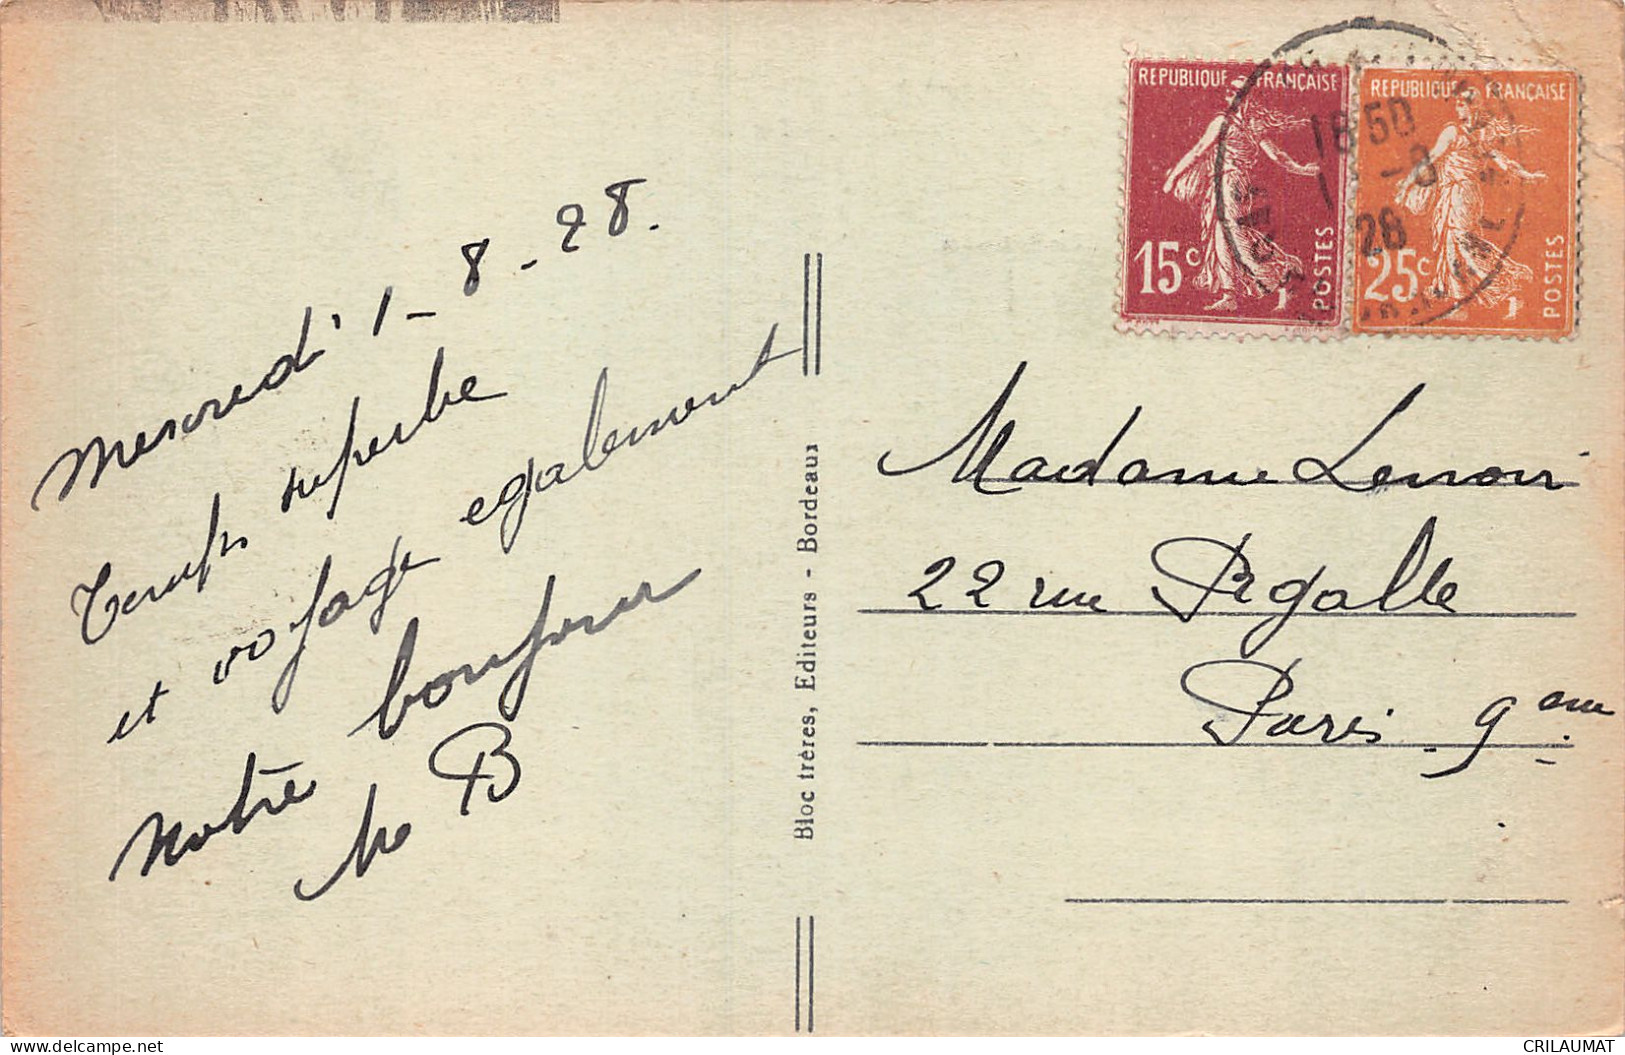 Mercredi 1-8-28.
Temps superbe
et voyage egalement
Notre bonjour
B
Bloc frères, Editeurs - Bordeaux
REPUBLIQUE FRANÇAISE
15c
POSTES
REPUBLIQUE FRANÇAISE
25c
POSTES
1850
1-8
28
Madame Lenoir
22 rue Pigalle
Paris. 9eme.
www.delcampe.net
CRILAUMAT